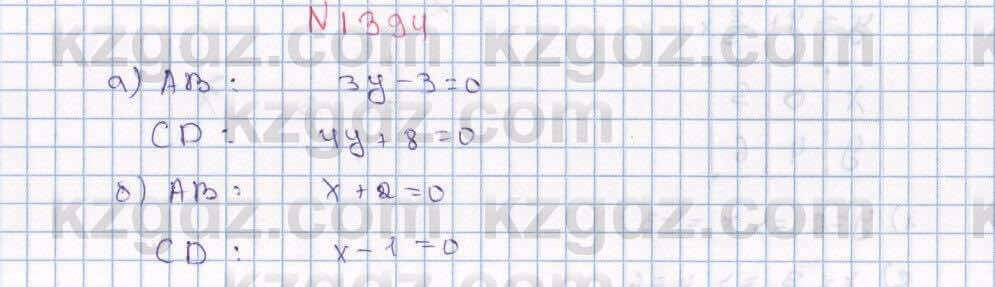 N1394
а) AB: 3y-3=0
CD: 4y+8=0
б) AB: x+2=0
CD: x-1=0
kzgdz.com kzgdz.com
kzgdz.com
kzgdz.com kzgdz.com